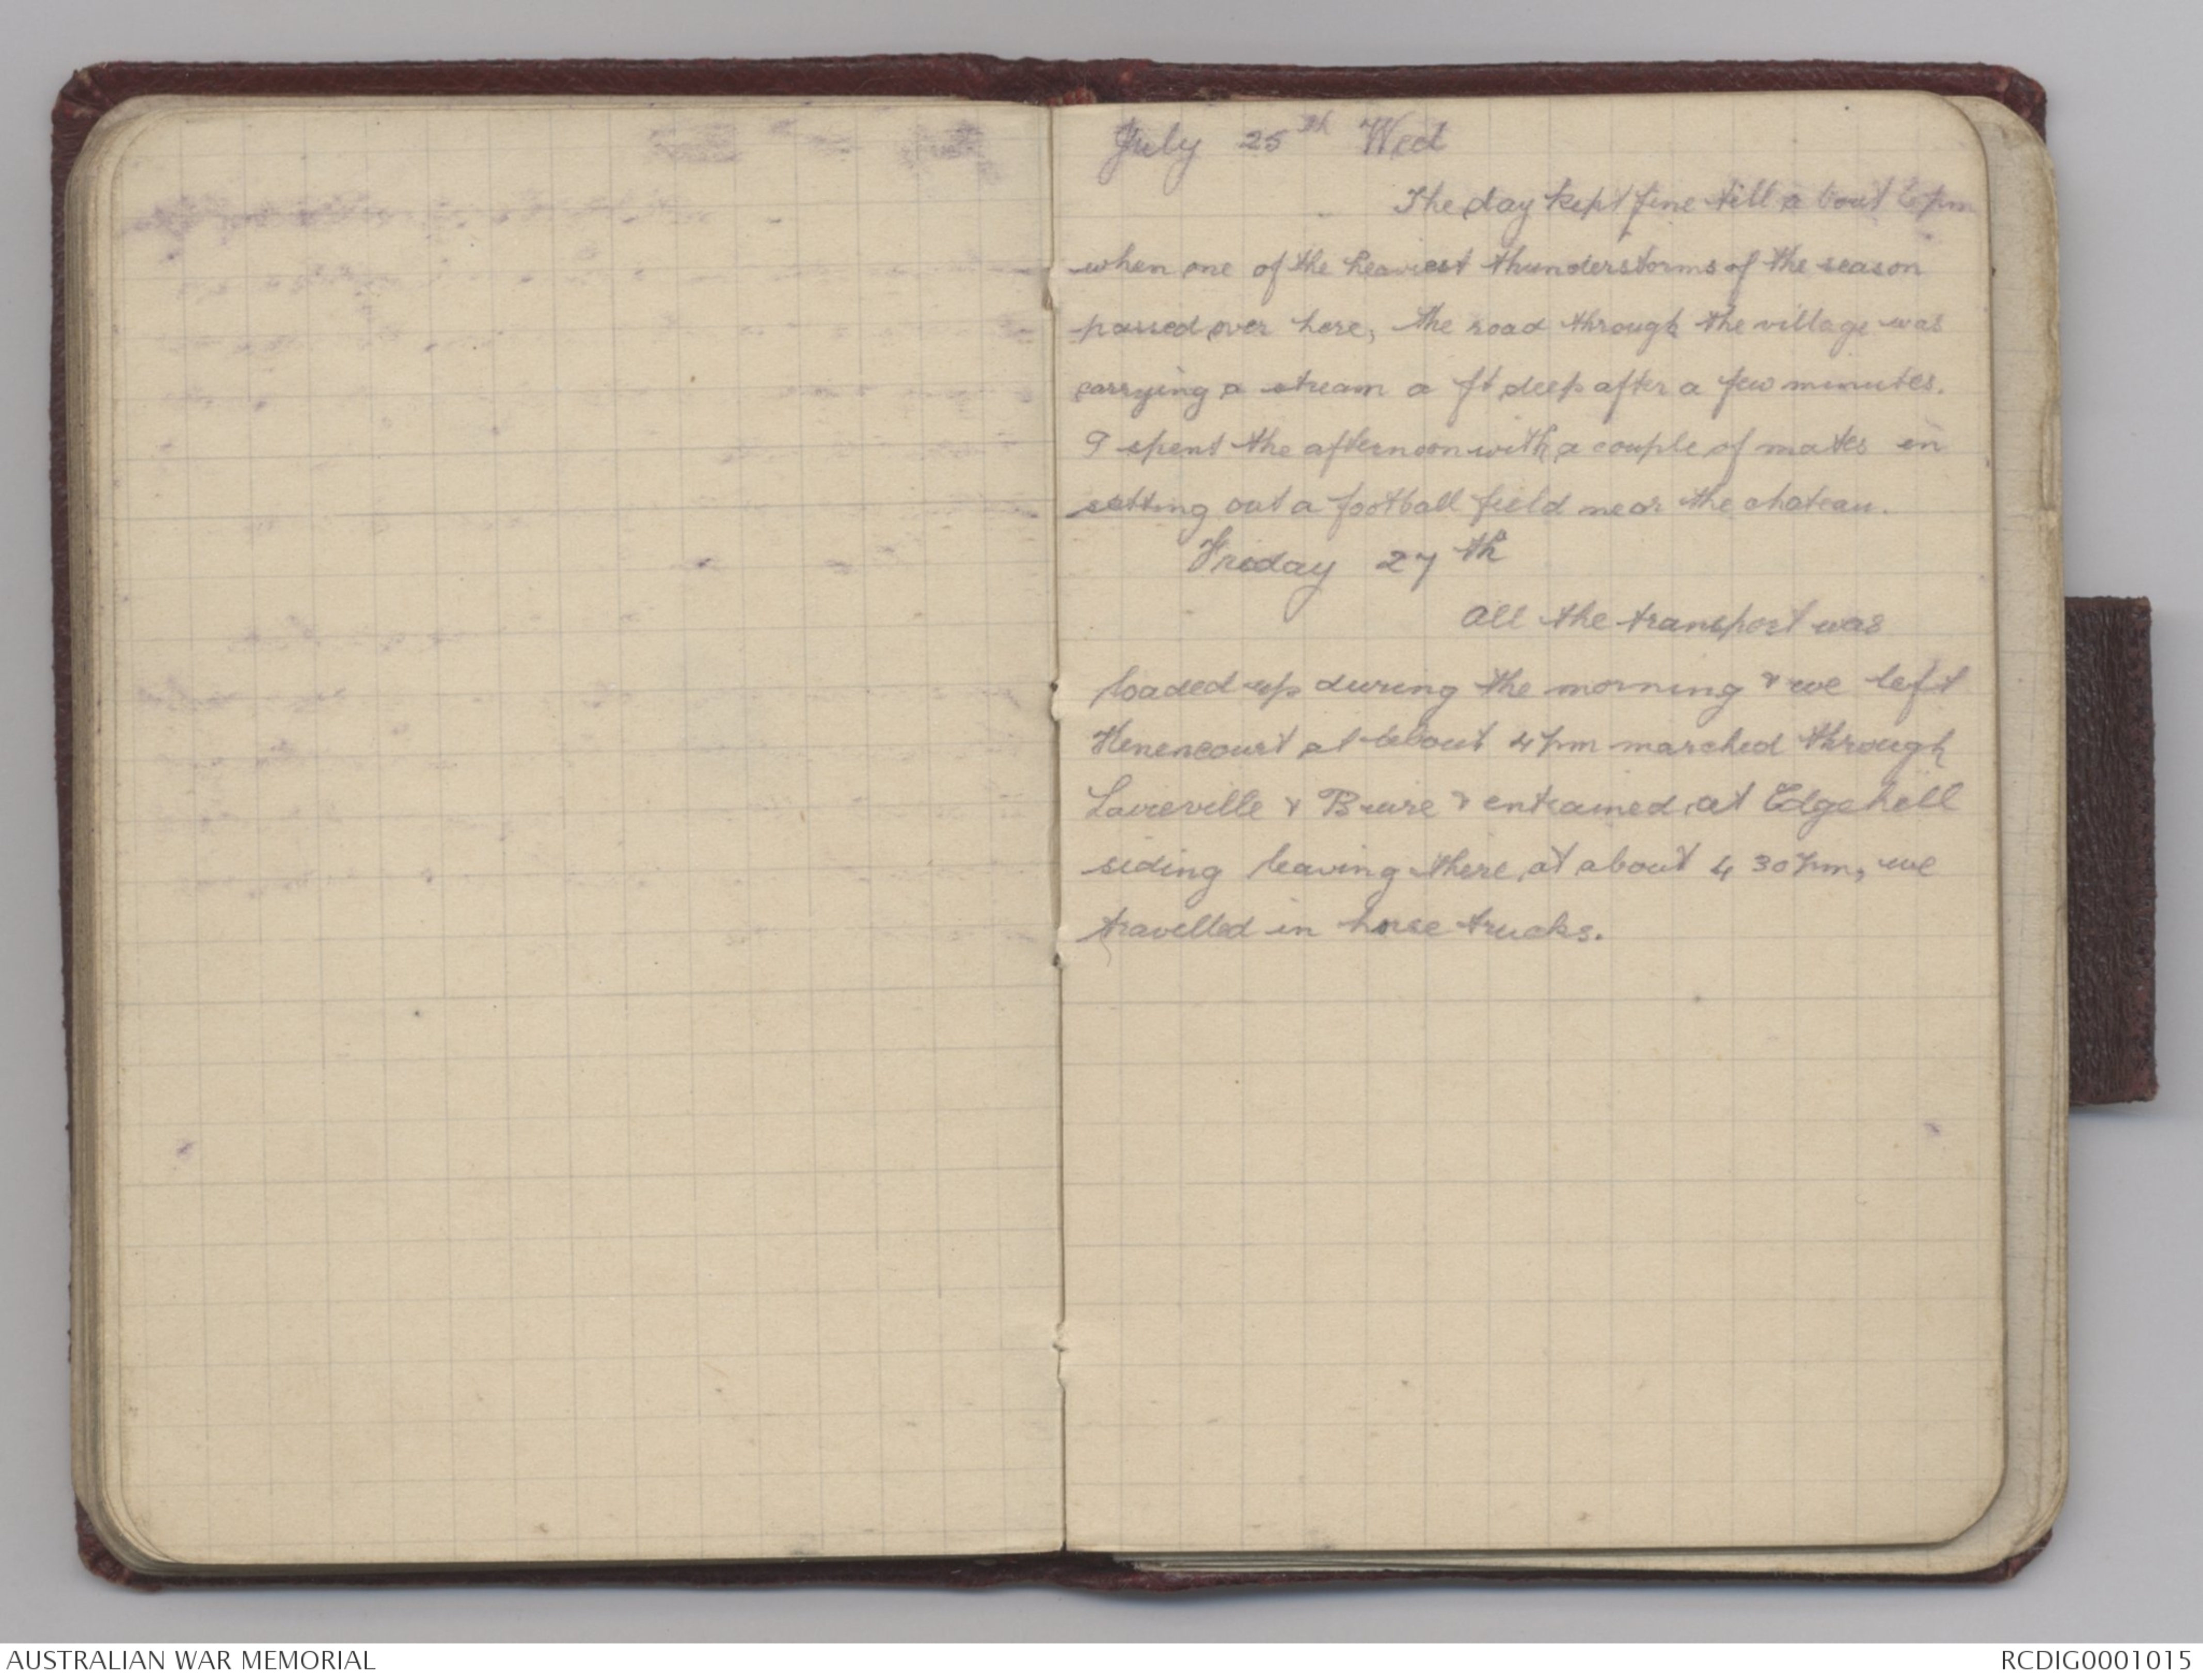 July 25th Wed
The day kept fine till about 6 pm
when one of the heaviest thunderstorms of the season
passed over here, the road through the village was
carrying a stream a ft deep after a few minutes.
I spent the afternoon with a couple of mates in
setting out a football field near the chateau.
Friday 27th
All the transport was
loaded up during the morning & we left
Henencourt at about 4 pm marched through
Lavieville & Buire & entrained at Edgehill
siding leaving there at about 4 30 pm, we
travelled in horse trucks.
AUSTRALIAN WAR MEMORIAL
RCDIG0001015